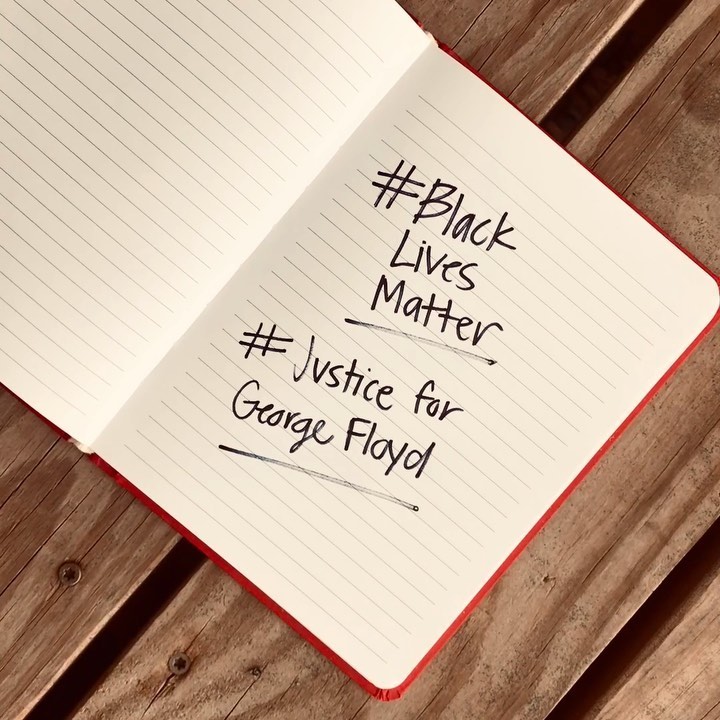 #Black
Lives
Matter
# Justice for
George Floyd